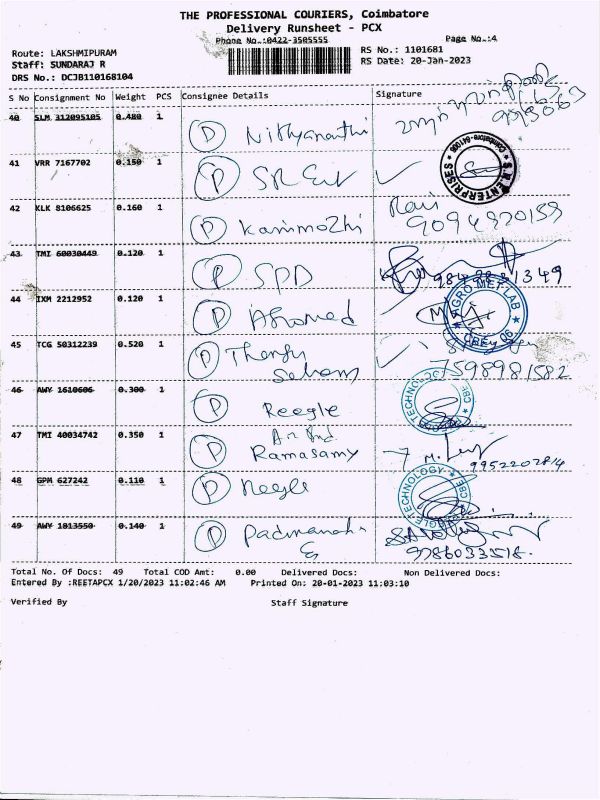 THE PROFESSIONAL COURIERS, Coimbatore
Delivery Runsheet - PCX
Phone No.:0422-3505555 Page No.:4
Route: LAKSHMIPURAM RS No.: 1101681
Staff: SUNDARAJ R RS Date: 20-Jan-2023
DRS No.: DCJB110168104
S No Consignment No Weight PCS Consignee Details Signature
40 SLM 312095105 0.480 1 P Nithyananthi
41 VRR 7167702 0.150 1 P SR Ent S.R. ENTERPRISES Coimbatore-641006
42 KLK 8106625 0.160 1 P Kanimozhi Ravi
9094920159
43 TMI 60030449 0.120 1 P SPD
44 IXM 2212952 0.120 1 P Ahamed AGRO MET-LAB CBE-06
45 TCG 50312239 0.520 1 P
7598981582
46 AWY 1610606 0.300 1 P Reegle TECHNOLOGY CBE
47 TMI 40034742 0.350 1 P
Ramasamy 9952202814
48 GPM 627242 0.110 1 P Reegle TECHNOLOGY CBE
49 AWY 1813550 0.140 1 P
9786033518.
Total No. Of Docs: 49 Total COD Amt: 0.00 Delivered Docs: Non Delivered Docs:
Entered By :REETAPCX 1/20/2023 11:02:46 AM Printed On: 20-01-2023 11:03:10
Verified By Staff Signature